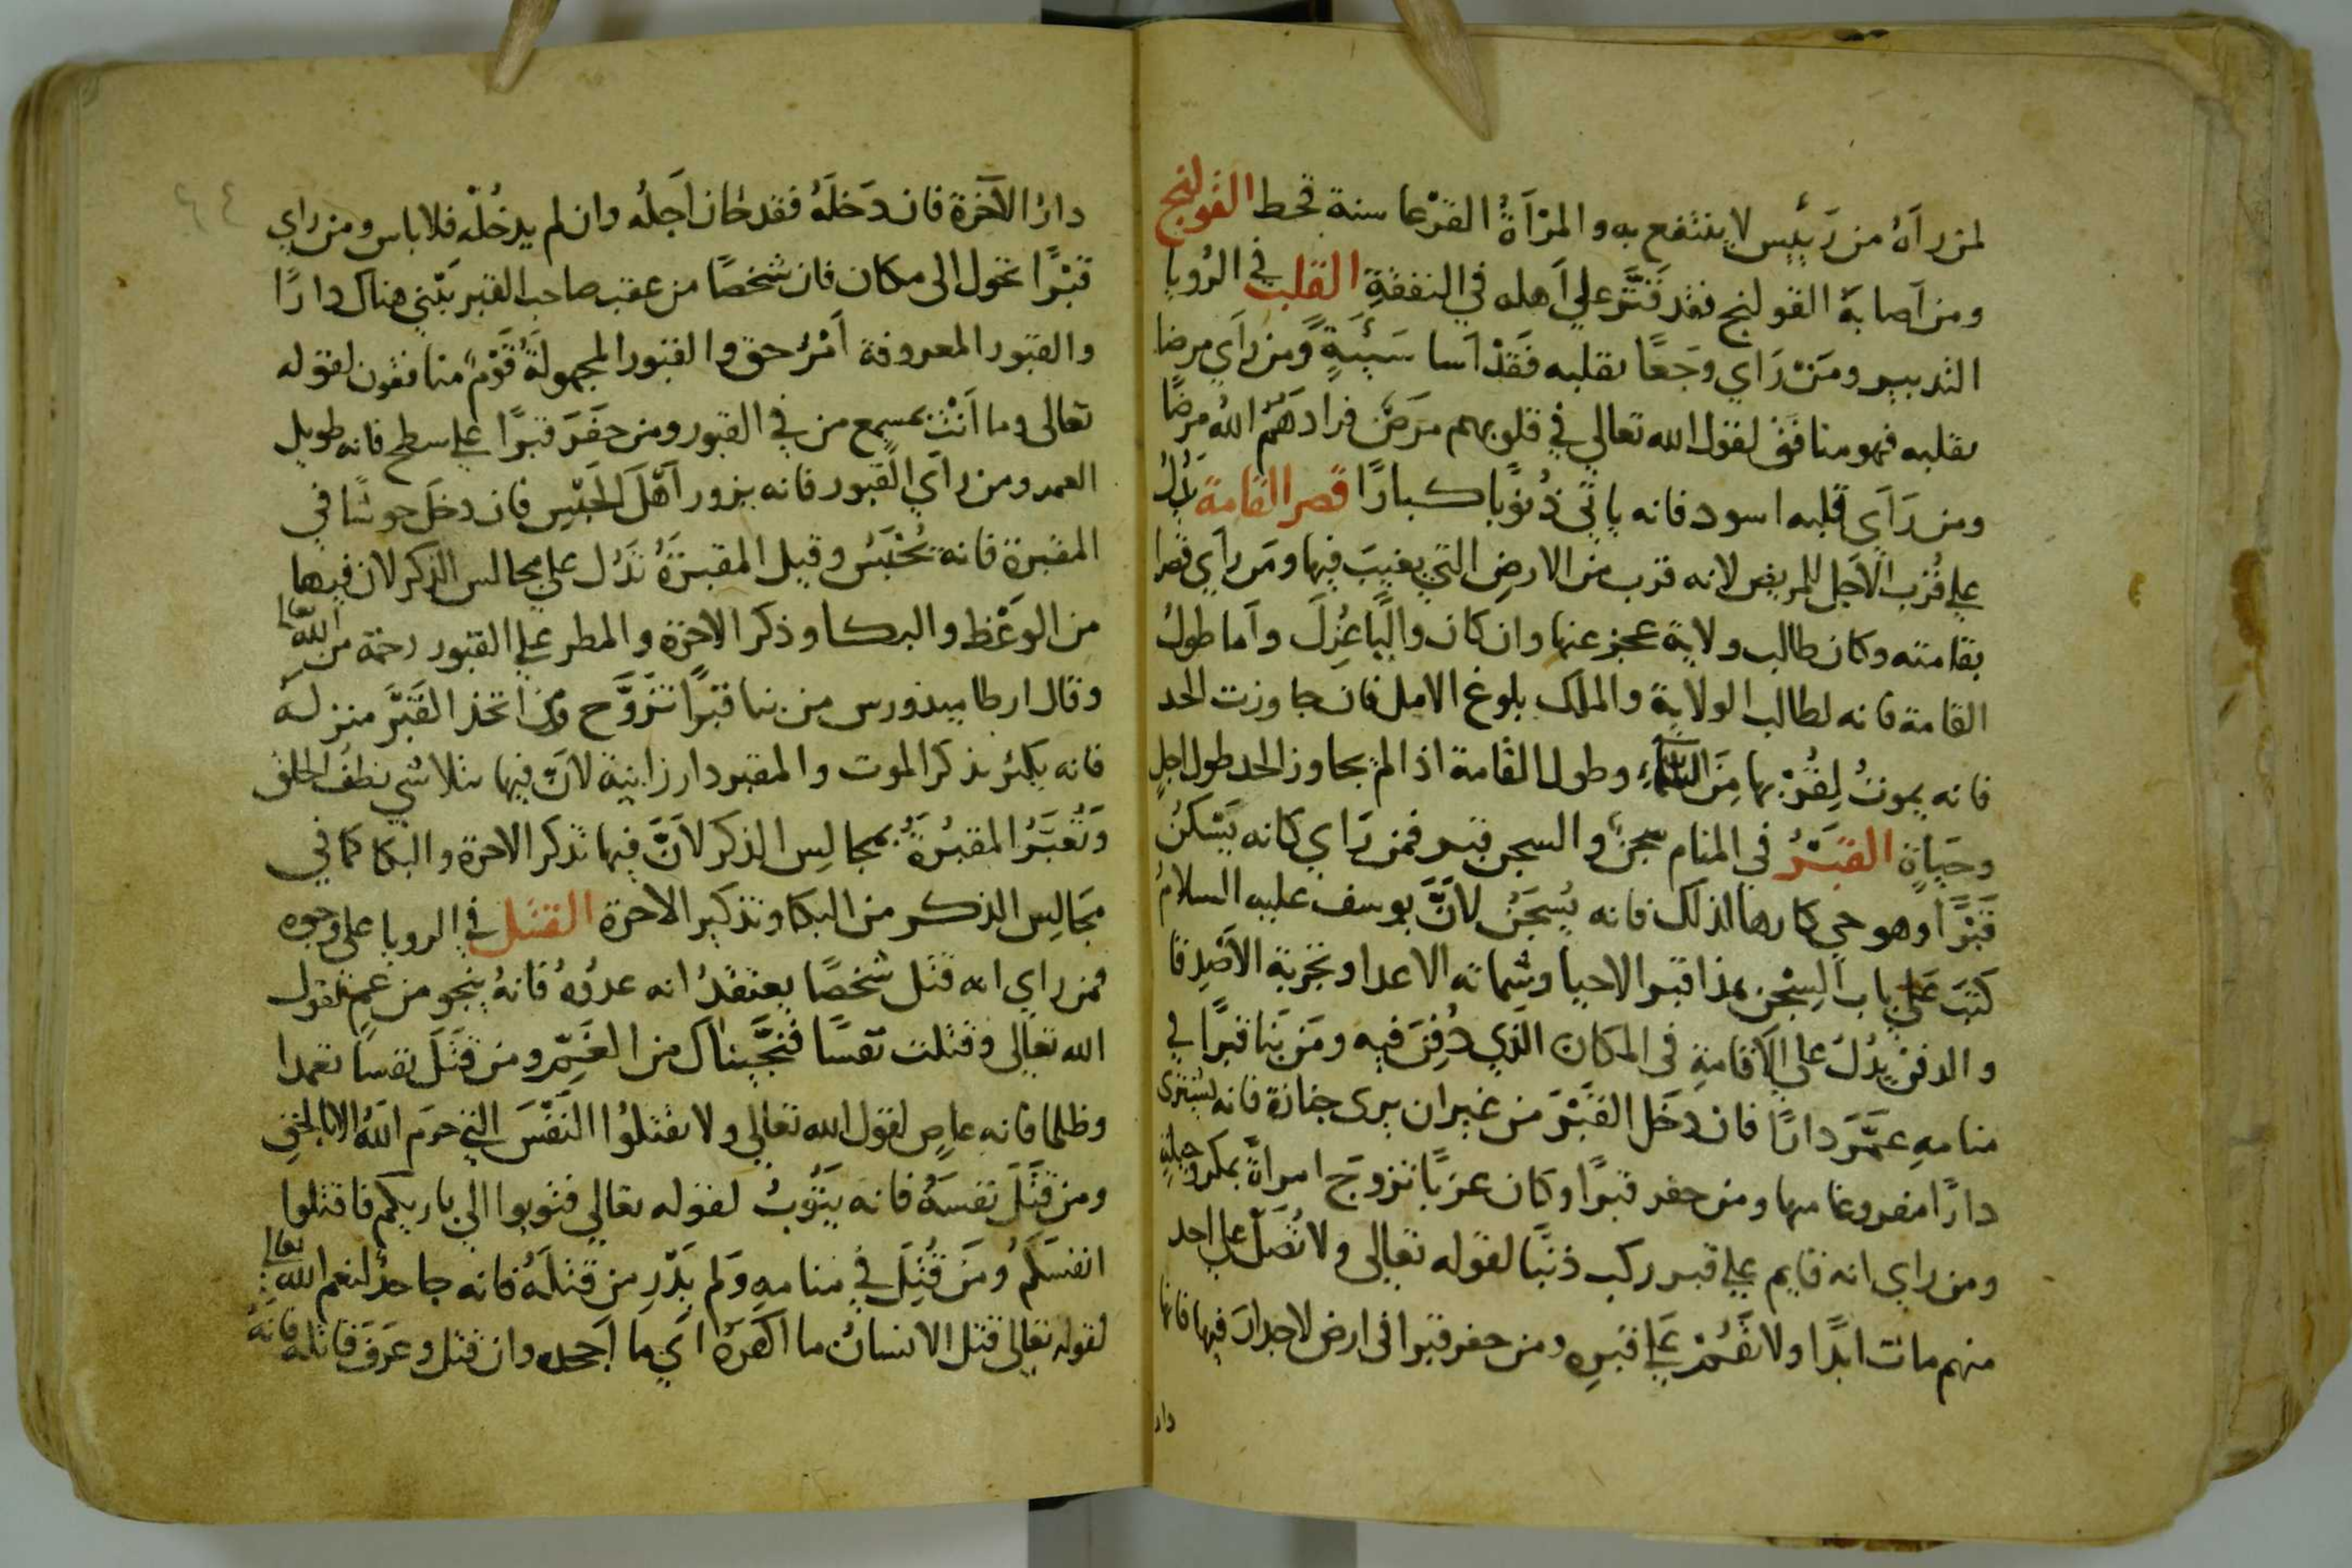 لمن رآهُ من رَئيس لا ينتفع به والمرْأَةُ القرْعا سنة قحط القولنج
ومن اَصابهُ القولنج فقد قَتَّر علي اَهله في النفقةِ القلب في الرُويا
التدبير ومَنْ رَاي وجَعًا بقلبه فَقَدْ اَسا سَيئَةً ومن رَاَي مرضا
بقلبه فهو منافق لقول الله تعالي في قلوبهم مرَضٌ فزادهَمُ اللهُ مرضًا
ومن رَاَي قلبه اسود فانه ياتي ذُنوُبًا كبارًا قصر القامة يدُل
علي قُرْب الاَجل للمريض لانه قرب من الارض التي يغيبَ فيها ومَن رَاَي قصرا
بقامته وكان طالب ولاية عجز عنها وان كان واليًا عُزِلَ واَما طولُ
القامة فانه لطالب الولاية والملك بلوغ الامل فان جاوزت الحد
فانه يموتُ لِقُرْبها مِنَ السماءِ وطول القامة اذا لم يجاوز الحد طول اجلٍ
وحَياةٍ القبْرُ في المنام سجنٌ والسجن قبر فمن رَاي كانه يَسْكنُ
قَبْرًا وهو حي كارها لذلك فانه يُسجَنُ لاَنَّ يوسف عليه السلامُ
كَتبَ عَلي باب السِجْن هذا قبر الاحيا وشماتة الاعدا وتجربة الاَصْدِقا
والدفن يدُلُ علي الاَقامةِ في المكان الَذي دُفِنَ فيه ومَن بَنا قبرًا في
منامهِ عمَّرَ دارًا فان دخَل القَبْرَ من غير ان يري جنازة فانه يشتري
دارًا مفروغا منها ومن حفر قبرًا وكان عزبًا تزوج امراةً بمكرٍ وحيلةٍ
ومن راي انه قايم علي قبر ركب ذنبًا لقوله تعالي ولا تُصَلِّ علي احد
منهم مات ابدًا ولا تقُمْ عَلي قبرِه ومن حفر قبرا في ارض لا جدارَ فيها فانها
دار
دارُ الآخرة فان دَخلَهُ فقد حَان اَجلُه وان لم يدخُلْه فلا باس ومن راي
قبْرًا تحول الى مكان فان شخصًا من عقب صاحب القبر يبْني هناك دارًا
والقبور المعروفة اَمْرُ حق والقبور المجهولةُ قَوْمٌ منافقون لقوله
تعالى وما اَنْتَ بمسمع من في القبور ومن حفَرَ قبرًا علي سطح فانه طويل
العمر ومن راَي القبور فانه يزور اَهْلَ الحَبْسِ فان دخَل حوشًا في
المقبرة فانه يُحْبَسُ وقيل المقبرَةُ تدُل علي مجالس الذكر لان فيها
من الوعْظ والبكا وذكر الاخرة والمطر علي القبور رحمة من الله تعالى
وقال ارطاميدورس من بنا قبرًا تزوَّج ومن اتخذ القَبْرَ منزله
فانه يكثر بذكر الموت والمقبر دار زانية لاَنَ فيها تتلاشي نطفُ الخلق
وَتُعَبَّرُ المقبُرةُ بمجالِس الذكر لاَنَّ فيها تذكر الاخرة والبكا كما في
مجَالِس الذكر من البكا وتذكير الاخرة القتل في الرويا على وجوه
فمن راي انه قتل شخصًا يعتقدُ انه عدُوهُ فانهُ ينجو من غم لقول
الله تعالي وقتلت نفسًا فنجَّيناك من الغَمِّ ومن قَتَلَ نفسا تعمدا
وظلما فانه عاصٍ لقول الله تعالي ولا تقتلوُا النَفْسَ التي حرم اللهُ الا بالحقِ
ومن قتَلَ نفسَهُ فانه يتوُبُ لقوله تعالي فتوبوا الي باريكم فاقتلوا
انفسَكُمْ ومَن قُتِلَ في منامهِ وَلم يَدْرِ من قتلَهُ فانه جاحدٌ لنعم الله تعالى
لقوله تعالي قتل الانسانُ ما اكفرهُ اَي ما اجحده وان قتل وعَرَفَ قاتله فانه